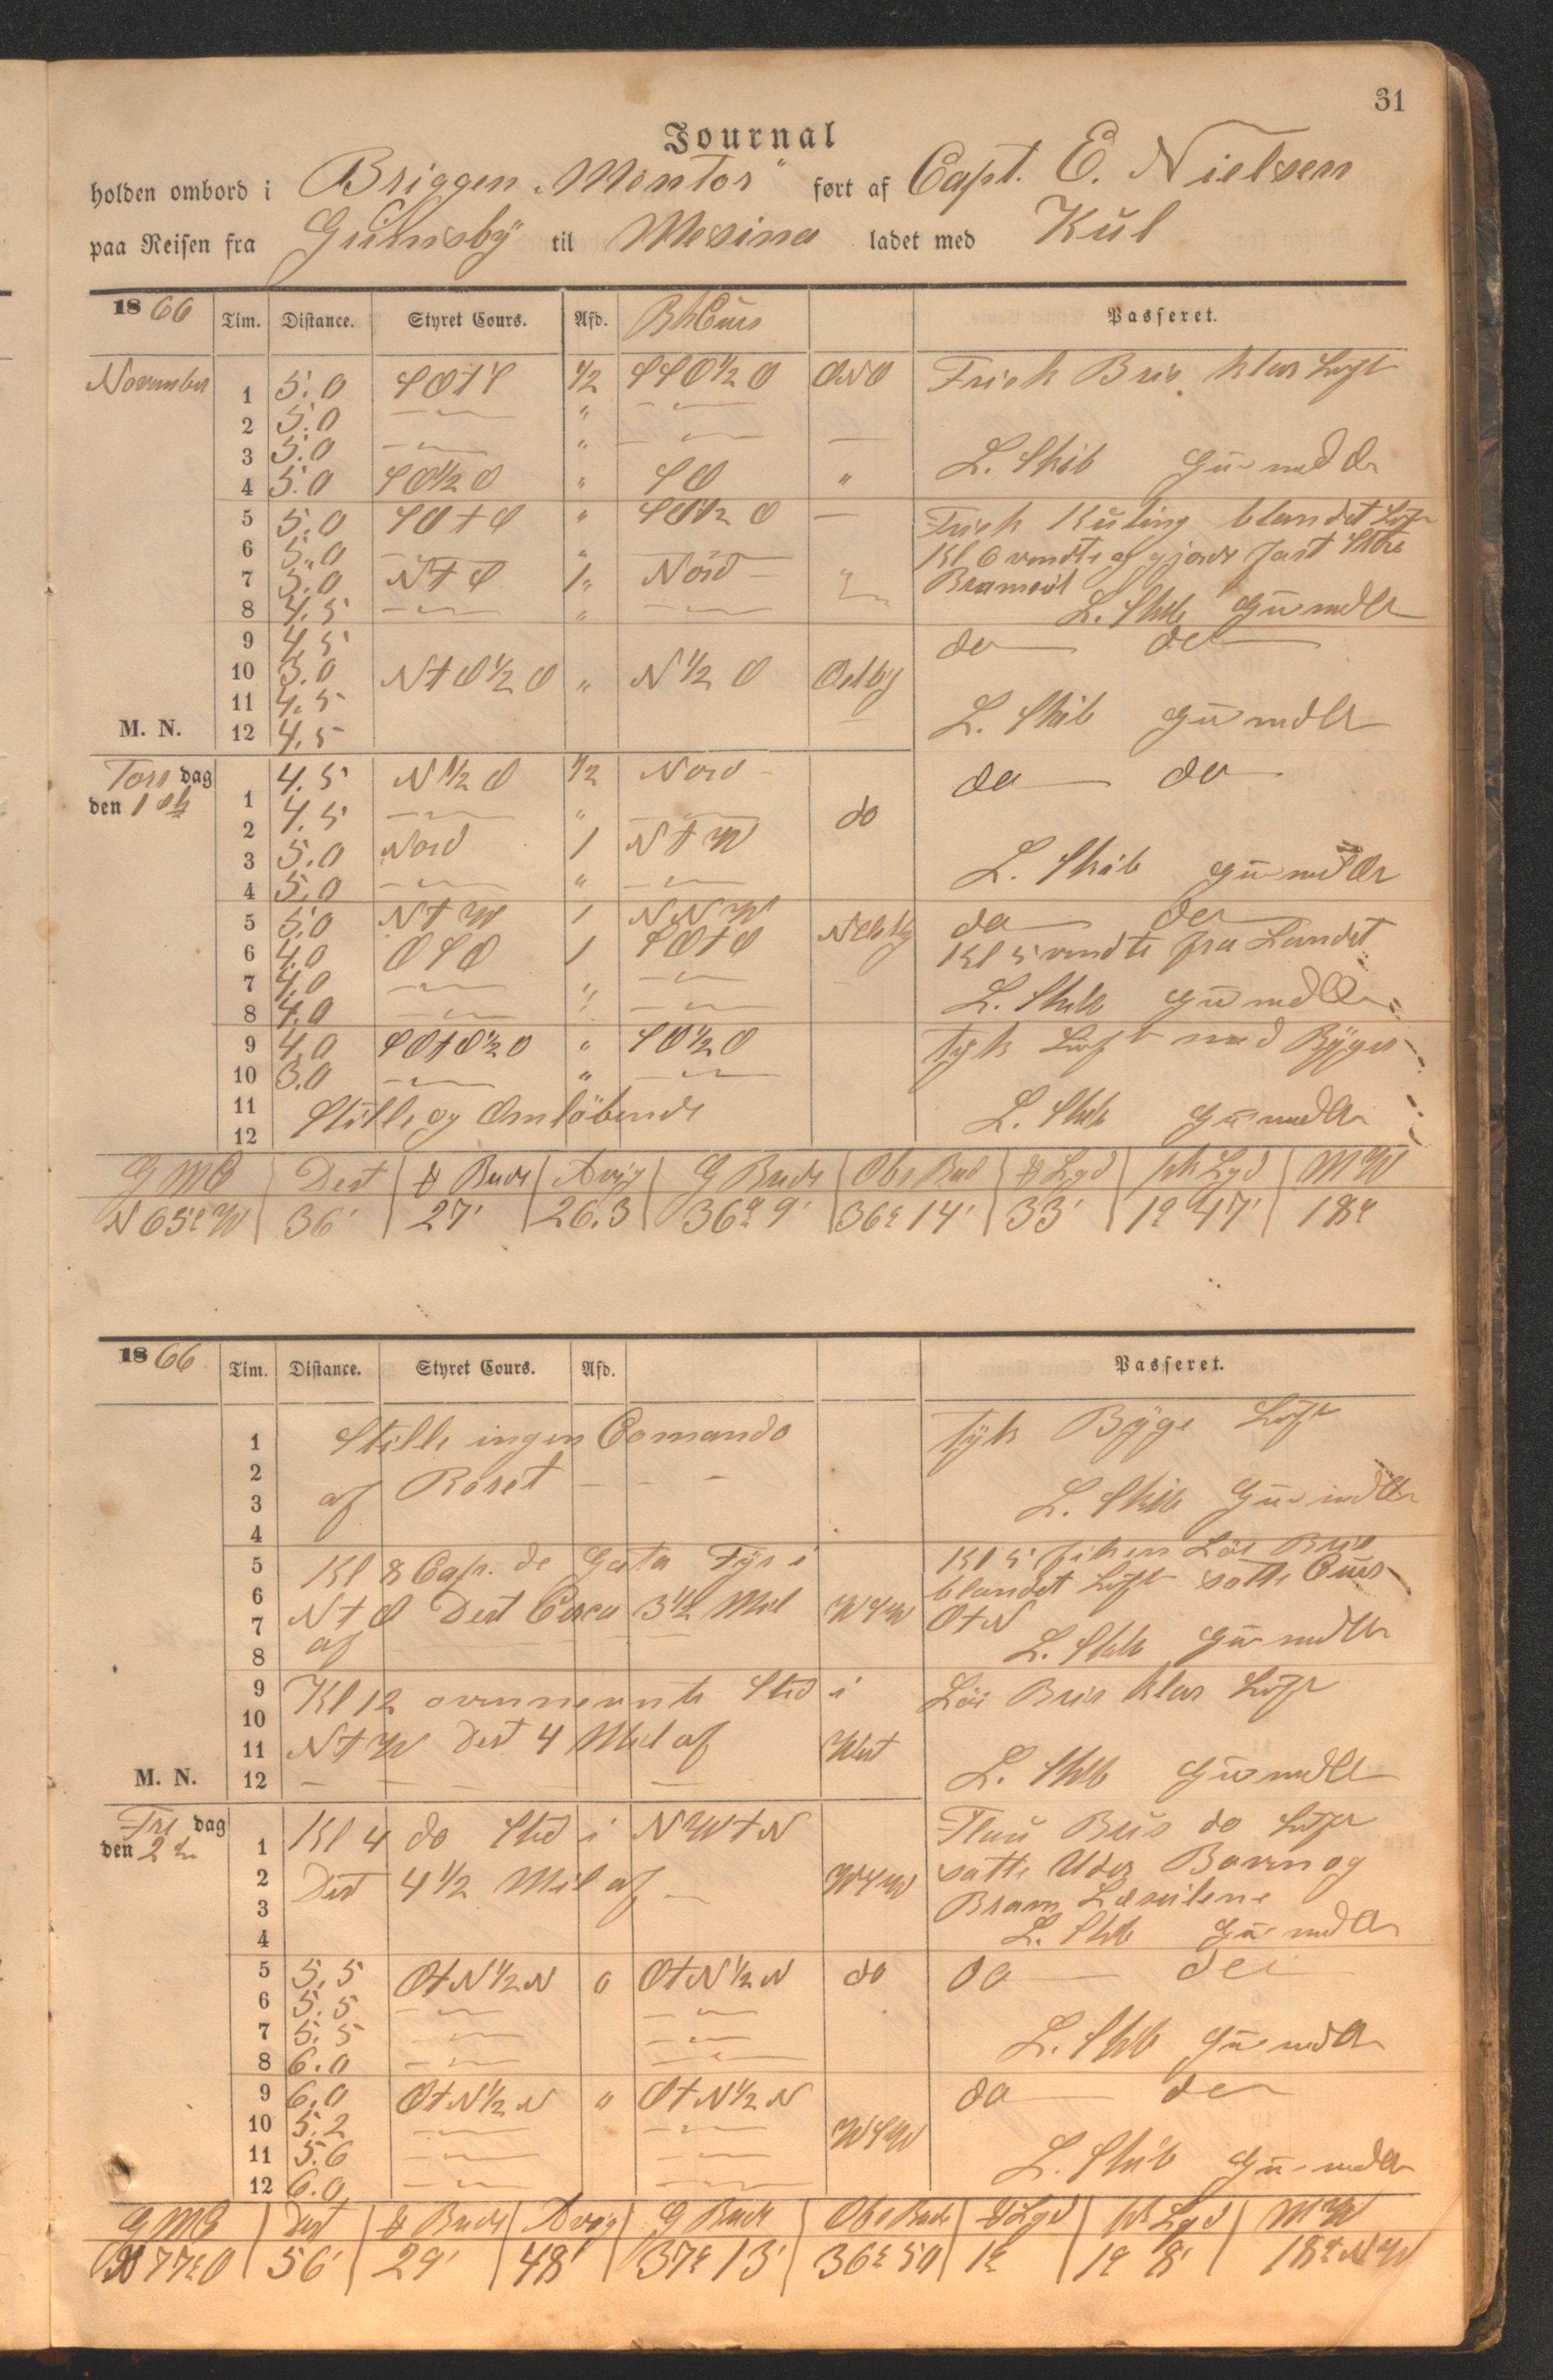 31
Journal
holden ombord i Briggen "Mentor" ført af Capt. E. Nielsen
paa Reisen fra Grimsby til Mesina ladet med Kul
1866 Tim. Distance. Styret Cours. Afd. Passeret.
November 1 5.0 SOtS 1/2 SSO1/2O ONO Frisk Bris klar Luft
2 5.0 "
3 5.0 " L. Skib
4 5.0 SO1/2O " SO "
5 5.0 SOtO " SO1/2O Frisk Kuling blandet Luft
6 5.0 " Kl 6 vendte og gjorde fast Store
7 5.0 NtO 1 " Nord " Bramseil
8 4.5 " L. Skib
9 4.5 do
10 3.0 NtO1/2O " N1/2O Ostlig
11 4.5 L. Skib
M. N. 12 4.5
Torsdag 1 4.5 N1/2O 1/2 Nord do do
den 1
2 4.5 " do
3 5.0 Nord 1 NtW L. Skib
4 5.0 "
5 5.0 NtW 1 NNW do
6 4.0 OSO 1 SOtO Kl 5 vendte fra Landet
7 4.0 " L. Skib
8 4.0 "
9 4.0 SOtO1/2O " SO1/2O Tyk Luft med Byger
10 3.0 "
11 Stille og Omløbende L. Skib
12
G MC Dest Brede Avig G Brede Obs Bred Lgd Lgd MW
N 65° W 36' 27' 26.3 36° 9' 36° 14' 33' 1° 47' 18°
1866 Tim. Distance. Styret Cours. Afd. Passeret.
1 Stille ingen Comando Tyk Byge Luft
2 af Roret
3 L. Skib
4
5 Kl 8 Cap. de Gata Fyr i Kl 5 fik en Lös Bris
6 NtO Dest Circa 3 1/2 Mil WSW blandet Luft satte Cours
7 af OtN
8 L. Skib
9 Kl 12 ovennevnte Sted i Lös Bris klar Luft
10
11 NtW Dest 4 Mil af West
M. N. 12 L. Skib
Fredag 1 Kl 4 do Sted i NWtN Flau Bris do Luft
den 2
2 Dest 4 1/2 Mil af WSW satte Under Boven og
3 Bram Læseilene
4 L. Skib
5 5.5 OtN1/2N 0 OtN1/2N do do
6 5.5
7 5.5 L. Skib
8 6.0
9 6.0 OtN1/2N 0 OtN1/2N do
10 5.2 WSW
11 5.6 L. Skib
12 6.0
G MC Dest Brede Avig G Brede Obs Brede Lgd Lgd MW
N 77° O 56' 29' 48' 37° 13' 36° 50 1° 1° 8' 18° NW